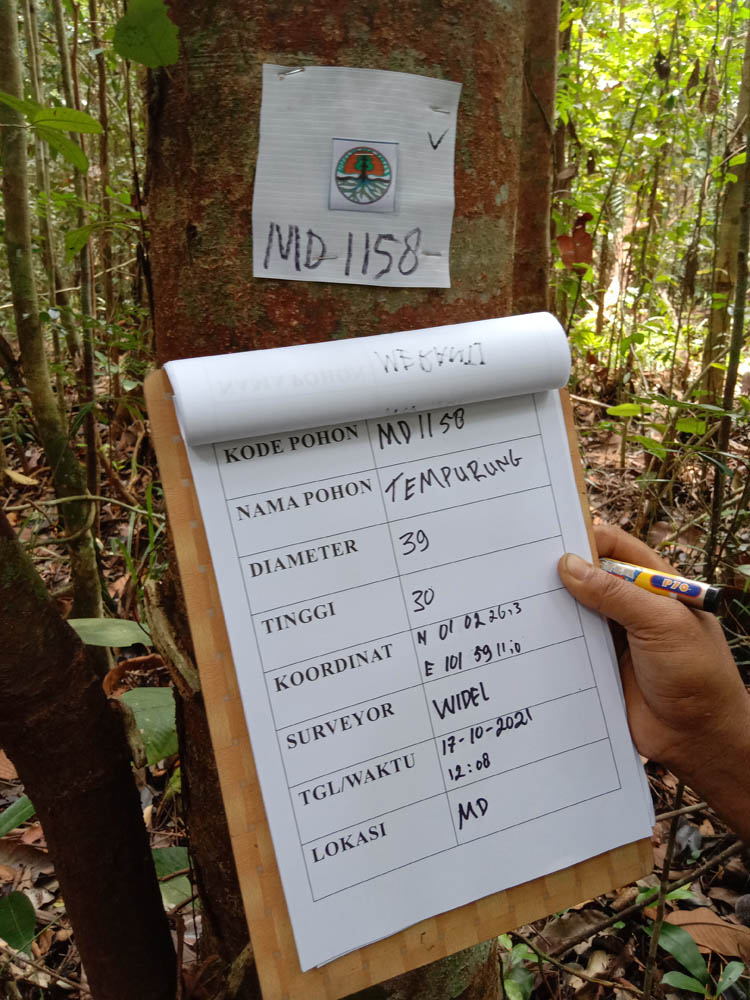 MD-1158-
KODE POHON MD1158
NAMA POHON TEMPURUNG
DIAMETER 39
TINGGI 30
KOORDINAT N 01 02 26,3
E 101 59 11,0
SURVEYOR WIDEL
TGL/WAKTU 17-10-2021
12:08
LOKASI MD
P70